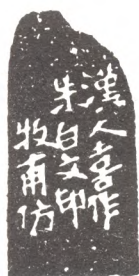 漢人喜作
朱白文印
牧甫仿